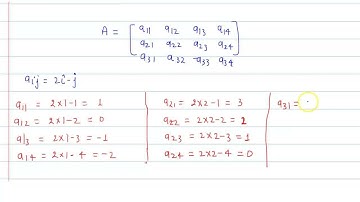 A = [ a11 a12 a13 a14
a21 a22 a23 a24
a31 a32 a33 a34 ]
aij = 2i-j
a11 = 2×1-1 = 1
a12 = 2×1-2 = 0
a13 = 2×1-3 = -1
a14 = 2×1-4 = -2
a21 = 2×2-1 = 3
a22 = 2×2-2 = 2
a23 = 2×2-3 = 1
a24 = 2×2-4 = 0
a31 =